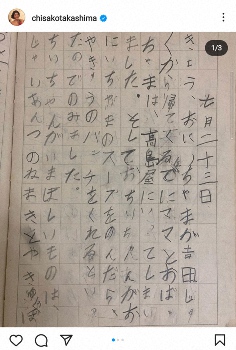 chisakotakashima
1/3
七月二十三日
きょう、おにいちゃまが吉田しょ
くから帰ってくるまでにママとおば
ちゃまは、高島屋にいってしまい
ました。そしておにいちゃんがお
にいちゃまのスープをのんだら、
やきゅうのバッチをくれるといっ
たのでのみました。
ちいちゃんがいまほしいものは、
じゃいあんつのねまきとやきゅうぼ